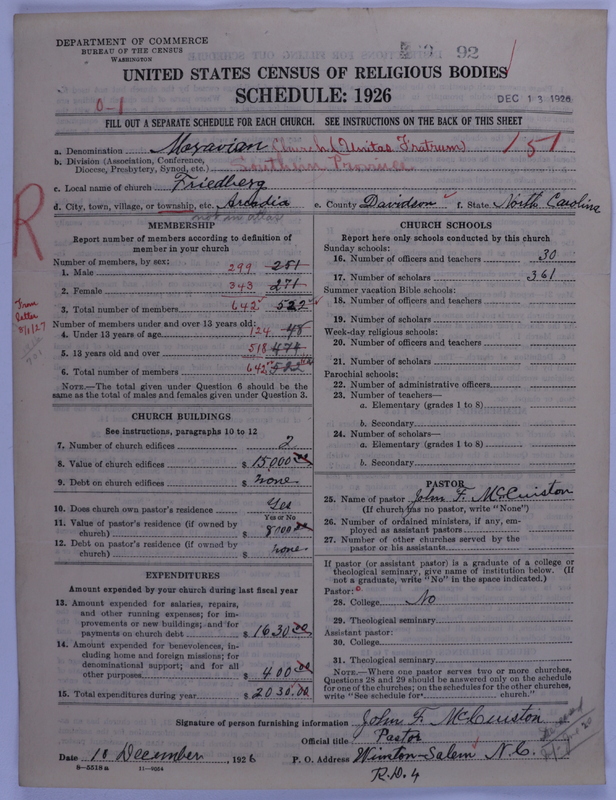 DEPARTMENT OF COMMERCE
BUREAU OF THE CENSUS
WASHINGTON
92
UNITED STATES CENSUS OF RELIGIOUS BODIES
SCHEDULE: 1926
DEC 13 1926
0-1
FILL OUT A SEPARATE SCHEDULE FOR EACH CHURCH. SEE INSTRUCTIONS ON THE BACK OF THIS SHEET
a. Denomination Moravian Church (Unitas Fratrum) 151
b. Division (Association, Conference, Diocese, Presbytery, Synod, etc.) Southern Province
c. Local name of church Friedberg
d. City, town, village, or township, etc. Arcadia e. County Davidson f. State North Carolina
not in atlas
R
MEMBERSHIP
Report number of members according to definition of
member in your church
Number of members, by sex:
1. Male 299 251
2. Female 343 271
3. Total number of members 642 522
From letter
Number of members under and over 13 years old:
4. Under 13 years of age 124 48
5. 13 years old and over 518 474
6. Total number of members 642
NOTE.—The total given under Question 6 should be the
same as the total of males and females given under Question 3.
CHURCH BUILDINGS
See instructions, paragraphs 10 to 12
7. Number of church edifices 2
8. Value of church edifices $ 15000 00
9. Debt on church edifices $ none
10. Does church own pastor's residence Yes
Yes or No
11. Value of pastor's residence (if owned by
church) $ 8000 00
12. Debt on pastor's residence (if owned by
church) $ none
EXPENDITURES
Amount expended by your church during last fiscal year
13. Amount expended for salaries, repairs,
and other running expenses; for im-
provements or new buildings; and for
payments on church debt $ 1630 00
14. Amount expended for benevolences, in-
cluding home and foreign missions; for
denominational support; and for all
other purposes $ 400 00
15. Total expenditures during year $ 2030.00
CHURCH SCHOOLS
Report here only schools conducted by this church
Sunday schools:
16. Number of officers and teachers 30
17. Number of scholars 361
Summer vacation Bible schools:
18. Number of officers and teachers
19. Number of scholars
Week-day religious schools:
20. Number of officers and teachers
21. Number of scholars
Parochial schools:
22. Number of administrative officers
23. Number of teachers—
a. Elementary (grades 1 to 8)
b. Secondary
24. Number of scholars—
a. Elementary (grades 1 to 8)
b. Secondary
PASTOR
25. Name of pastor John F. McCuiston
(If church has no pastor, write "None")
26. Number of ordained ministers, if any, em-
ployed as assistant pastors
27. Number of other churches served by the
pastor or his assistants
If pastor (or assistant pastor) is a graduate of a college or
theological seminary, give name of institution below. (If
not a graduate, write "No" in the space indicated.)
Pastor:
28. College No
29. Theological seminary
Assistant pastor:
30. College
31. Theological seminary
NOTE.—Where one pastor serves two or more churches,
Questions 28 and 29 should be answered only on the schedule
for one of the churches; on the schedules for the other churches,
write "See schedule for church."
Signature of person furnishing information John F. McCuiston
Official title Pastor
Date 10 December, 1926 P. O. Address Winston-Salem N.C.
8-5518a 11-9264 R.D. 4